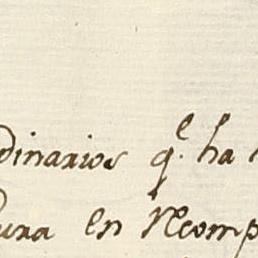 dinarios q.e ha
ura en Recomp